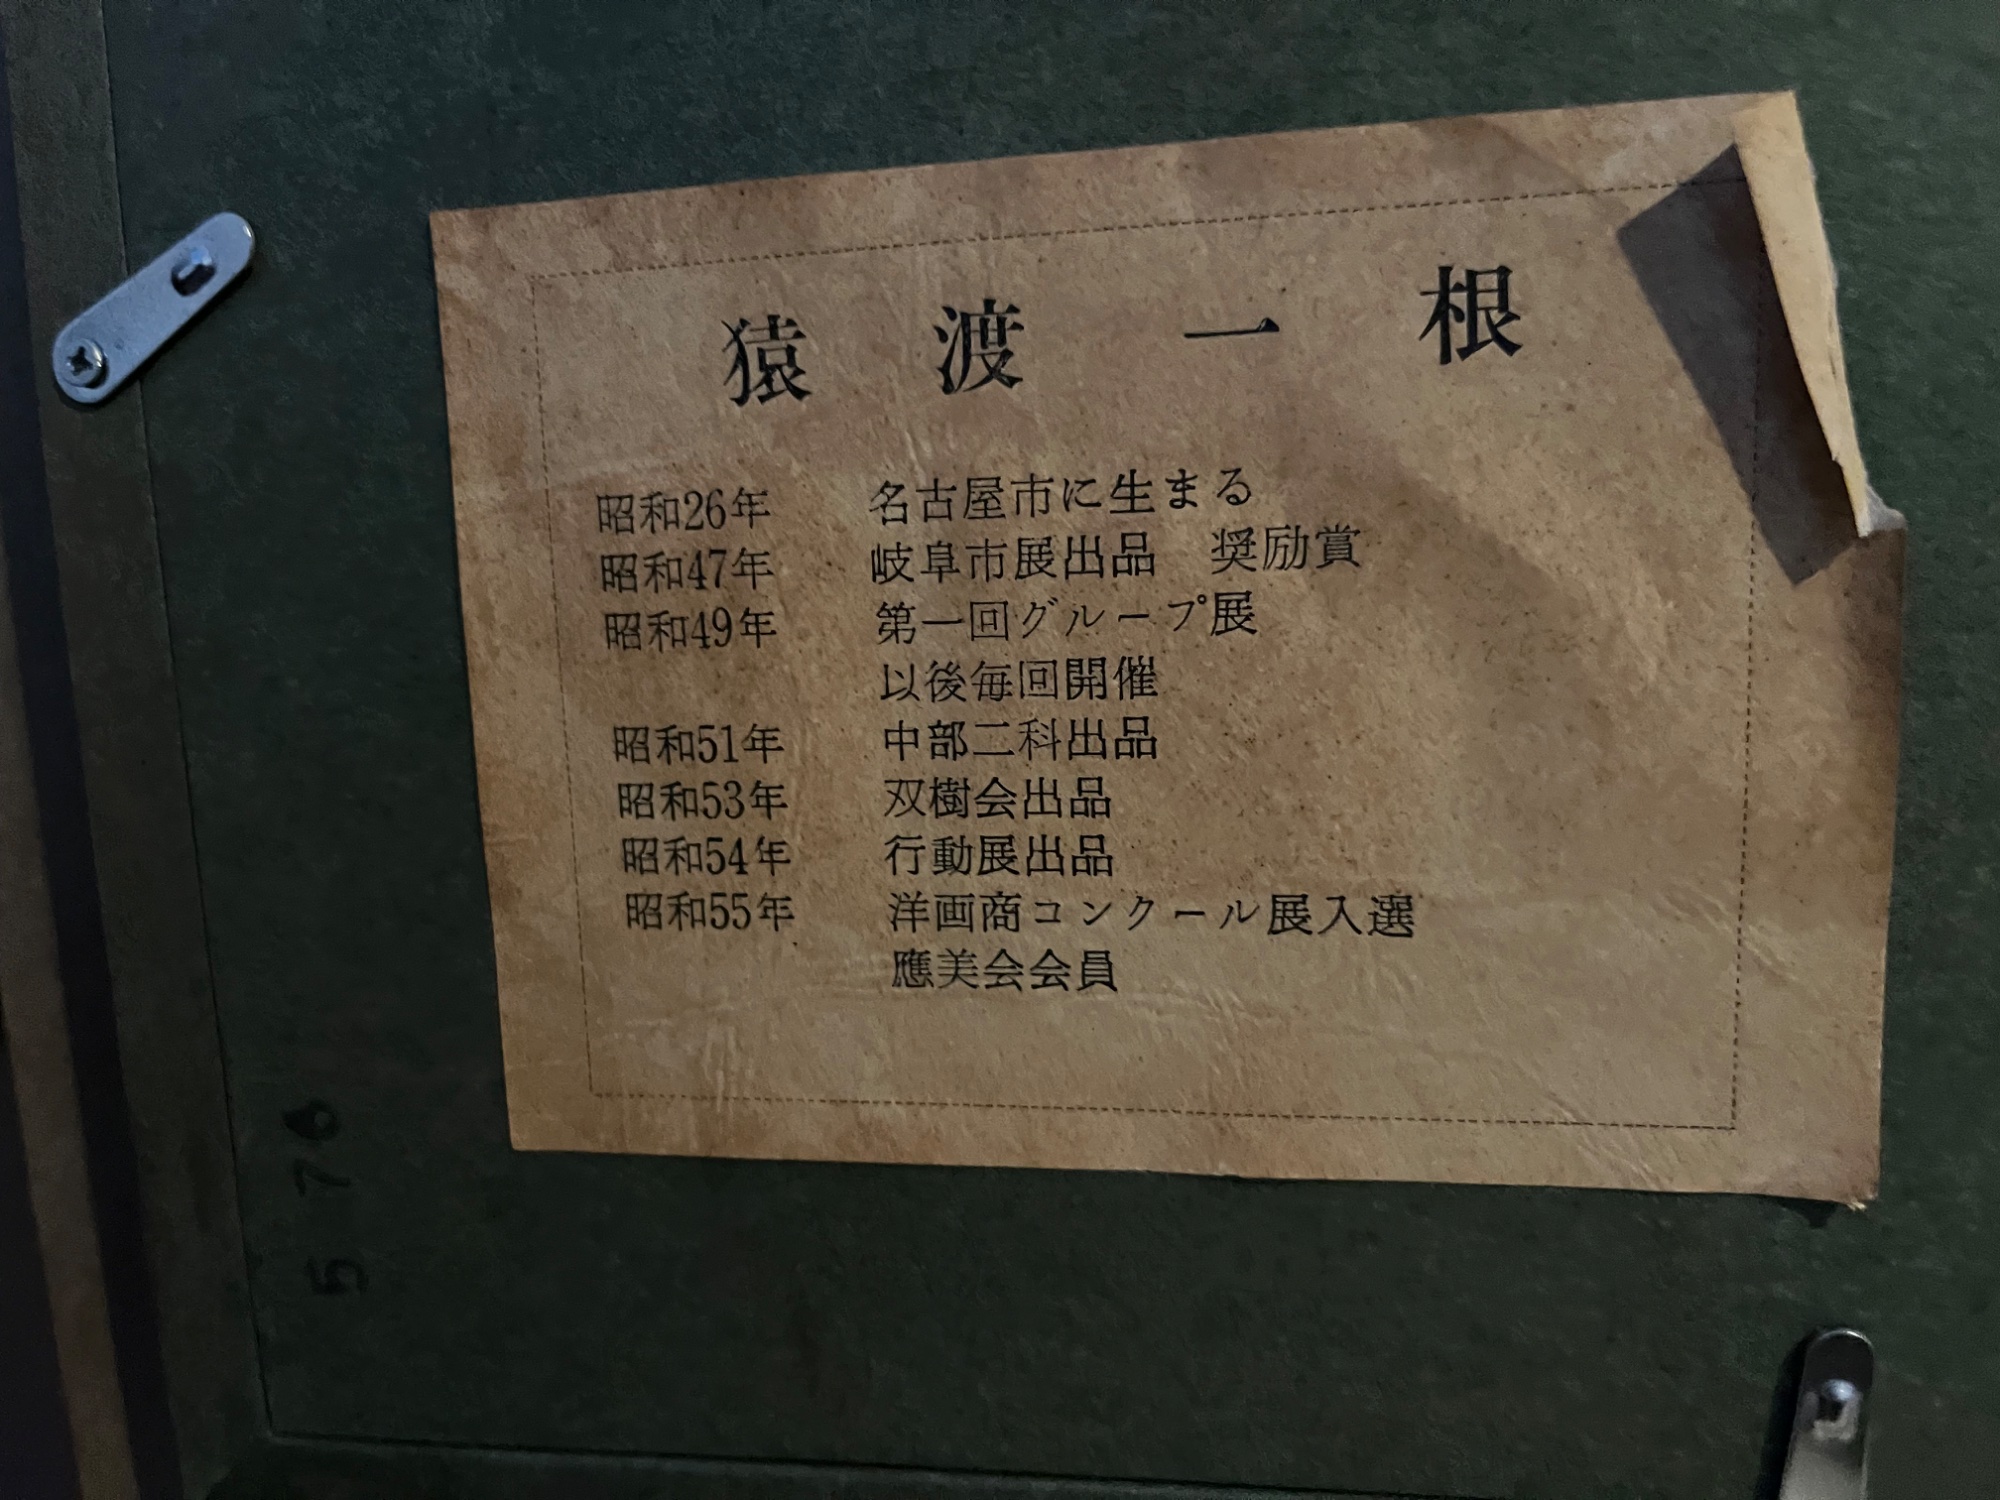 猿渡一根
昭和26年 名古屋市に生まる
昭和47年 岐阜市展出品 奨励賞
昭和49年 第一回グループ展
以後毎回開催
昭和51年 中部二科出品
昭和53年 双樹会出品
昭和54年 行動展出品
昭和55年 洋画商コンクール展入選
應美会会員
576